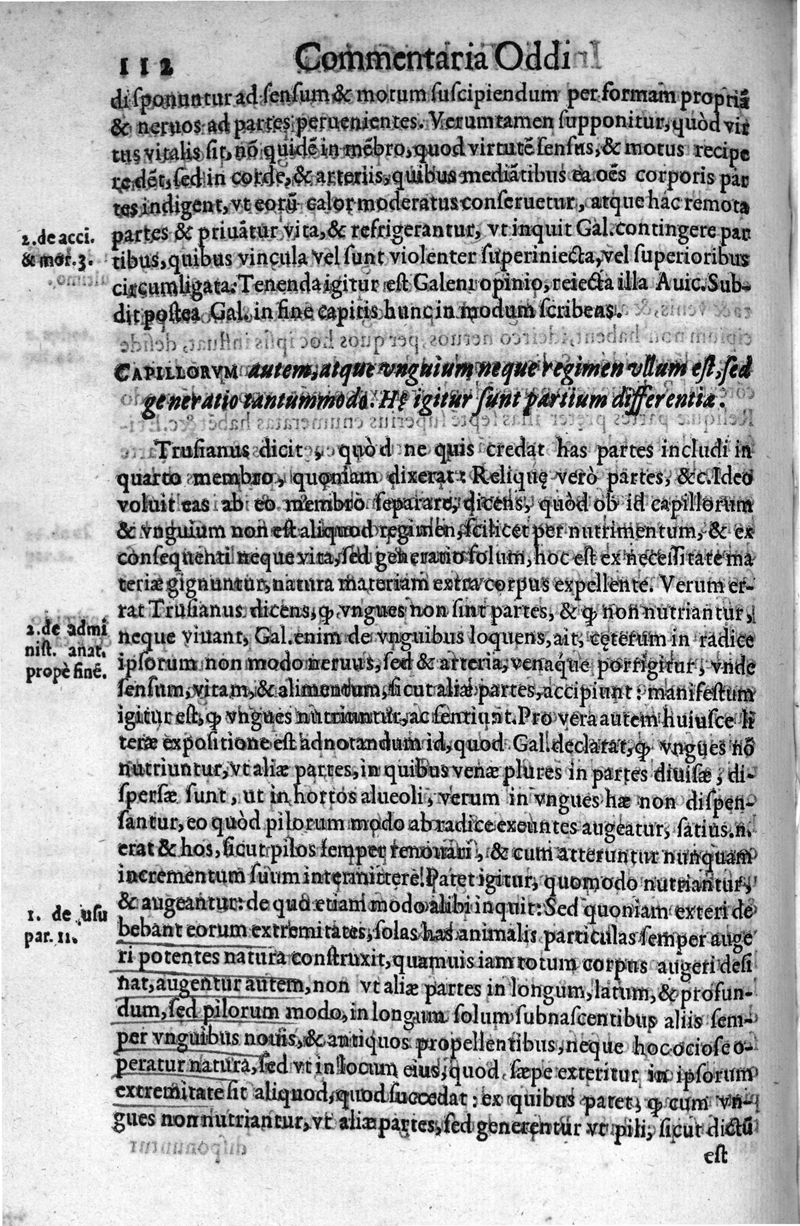 112 Commentaria Oddi
disponuntur ad sensum & motum suscipiendum per formam propriā
& neruos ad partes peruenientes. Verumtamen supponitur, quòd vir
tus vitalis sit, nō quidē in mēbro, quod virtutē sensus, & motus recipe
re dēt, sed in corde, & arteriis, quibus mediātibus ea oēs corporis par
tes indigent, vt eorū calor moderatus conseruetur, atque hac remota
partes & priuātur vita, & refrigerantur, vt inquit Gal. contingere par
tibus, quibus vincula vel sunt violenter superiniecta, vel superioribus
circumligata. Tenenda igitur est Galeni opinio, reiecta illa Auic. Sub-
dit postea Gal. in fine capitis hunc in modum scribens.
2. de acci.
& mor. 3.
CAPILLORVM autem, atque vnguium neque regimen vllum est, sed
generatio tantummodo. Hę igitur sunt partium differentiæ.
Trusianus dicit, quòd ne quis credat has partes includi in
quarto membro, quoniam dixerat: Reliquę verò partes, &c. Ideo
voluit eas ab eo membro separare, dicens, quòd ob id capillorum
& vnguium non est aliquod regimen, scilicet per nutrimentum, & ex
consequenti neque vita, sed generatio solum, hoc est ex necessitate ma
teriæ gignuntur, natura materiam extra corpus expellente. Verum er-
rat Trusianus dicens, ꝙ vngues non sint partes, & ꝙ non nutriantur,
neque viuant, Gal. enim de vnguibus loquens, ait, cęterum in radice
ipsorum non modo neruus, sed & arteria, venaque porrigitur, vnde
sensum, vitam, & alimentum, sicut aliæ partes, accipiunt: manifestum
igitur est, ꝙ vngues nutriuntur, ac sentiunt. Pro vera autem huiusce li
teræ expositione est adnotandum id, quod Gal. declarat, ꝙ vngues nō
nutriuntur, vt aliæ partes, in quibus venæ plures in partes diuisæ, di-
spersæ sunt, ut in hortos alueoli, verum in vngues hæ non dispen-
santur, eo quòd pilorum modo ab radice exeuntes augeatur, satius. n.
erat & hos, sicut pilos semper renouari, & cum atteruntur nunquam
incrementum suum intermittere. Patet igitur, quomodo nutriantur,
& augeantur: de qua etiam modo alibi inquit: Sed quoniam exteri de
bebant eorum extremitates, solas has animalis particulas semper auge
ri potentes natura construxit, quamuis iam totum corpus augeri desi
nat, augentur autem, non vt aliæ partes in longum, latum, & profun-
dum, sed pilorum modo, in longum solum subnascentibus aliis sem-
per vnguibus nouis, & antiquos propellentibus, neque hoc ociose o-
peratur natura, sed vt in locum eius, quod sæpe exteritur in ipsorum
extremitate sit aliquod, quod succedat: ex quibus patet, ꝙ cum vn-
gues non nutriantur, vt aliæ partes, sed generentur vt pili, sicut dictū
2. de admi
nist. anat.
propè finē.
1. de usu
par. 11.
est